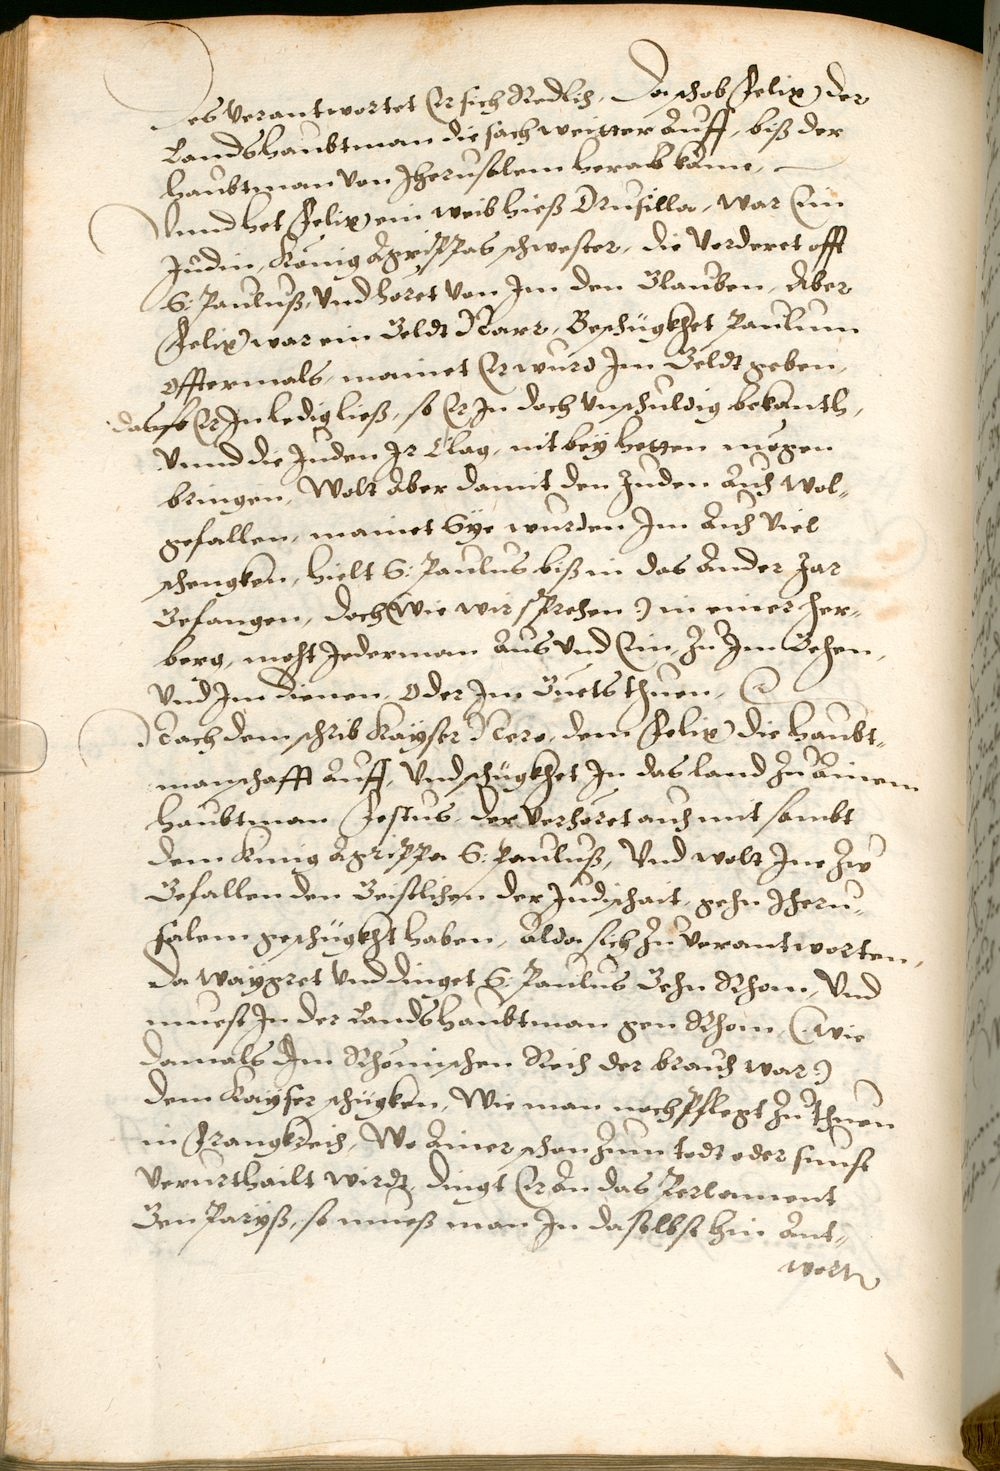 Des verantwortet Er sich Redlich, Da schob Felix der
Landshaubtman die sach weitter Auff, biß der
haubtman von Jherusalem herab käme,
Nun het Felix ein weib hieß Drusilla, war Ein
Judin, König Agrippas schwester, die Vorderet offt
S: Pauluß, Vnd höret von Jm den Glauben, Aber
Felix war ein Geldt Narr, Beschügkhet Paulum
Offtermals, mainet Er wurd Jm Geldt geben,
das so Er Jn ledig ließ, so Er Jn doch Vnschuldig bekanth,
Vnnd die Juden Jr Clag, nit bey hetten mögen
bringen, Wolt Aber damit den Juden Auch Wol-
gefallen, mainet Sye wurden Jm Auch Viel
schengken, hielt S: Paulus biß in das Ander Jar
Gefangen, doch (wie wir sprechen:) in einer Her-
berg, mocht Jederman Aus Vnd Ein, Zu Jm Gehen,
Vnd Jm dienen, Oder Jm Guets thuen,
Nach dem schrib Kayser Nero, dem Felix die Haubt-
manschafft Auff, Vnd schügkhet Jn das land Zu Ainem
haubtman Festus, der Verhöret auch mit sambt
dem Kunig Agrippa S: Pauluß, Vnd wolt Jne Zw
Gefallen den Geistlichen der Judischait, gehn Jheru-
salem geschügkht haben, Alda sich Zu Verantworten,
Da Waygret Vnd dinget S: Paulus Gehn Rhom, Vnd
muest Jn der Landshaubtman gen Rhom, (wie
damals Jm Rhömischen Reich der brauch war:)
dem Kayser schügken, Wie man noch Pflegt Zu thuen
in Frangkreich, Wo Ainer schon Zum todt oder sunst
Verurthailt wirdt, dingt Er An das Perlament
Gen Paryß, so mueß man Jn daselbst hin Ant-
wortn